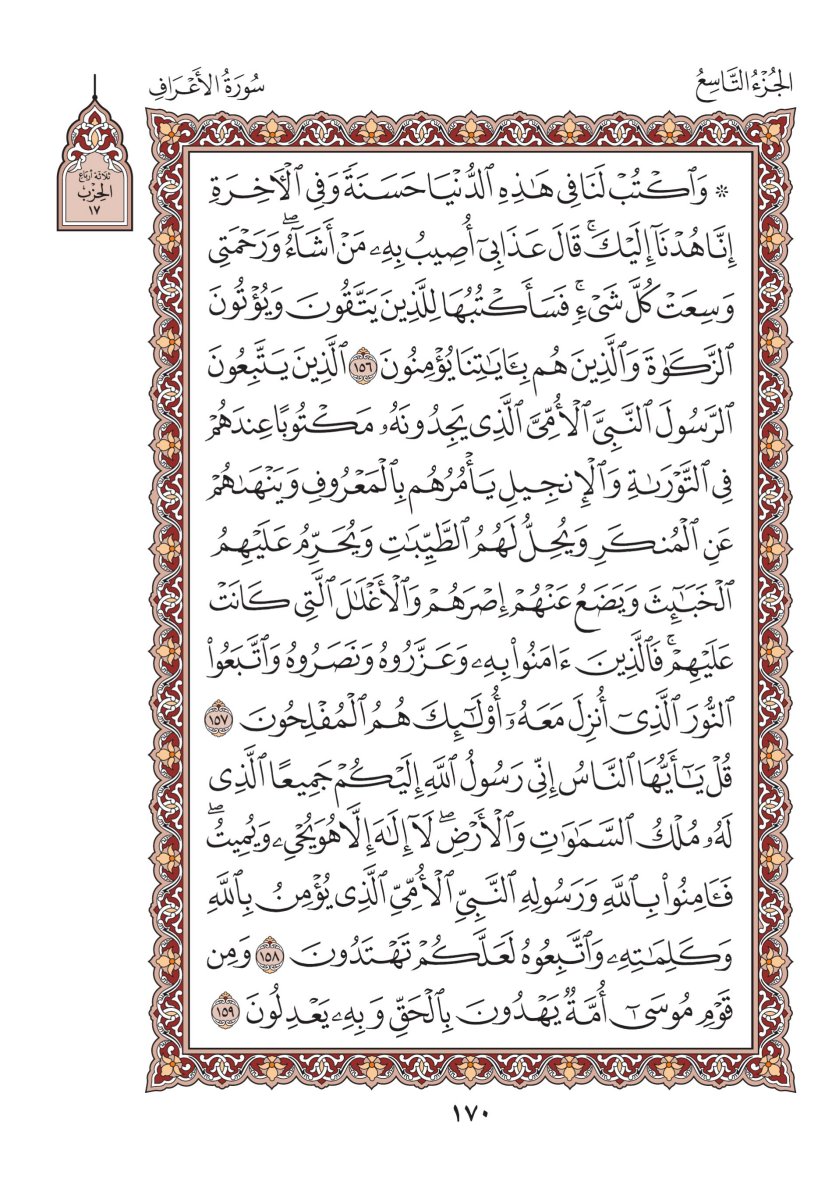 الجُزْءُ التَّاسِعُ
سُورَةُ الأَعْرَافِ
ثلاثة أرباع
الحِزْب
١٧
۞ وَٱكْتُبْ لَنَا فِى هَٰذِهِ ٱلدُّنْيَا حَسَنَةً وَفِى ٱلْأَخِرَةِ
إِنَّا هُدْنَآ إِلَيْكَ ۚ قَالَ عَذَابِىٓ أُصِيبُ بِهِۦ مَنْ أَشَآءُ ۖ وَرَحْمَتِى
وَسِعَتْ كُلَّ شَىْءٍ ۚ فَسَأَكْتُبُهَا لِلَّذِينَ يَتَّقُونَ وَيُؤْتُونَ
ٱلزَّكَوٰةَ وَٱلَّذِينَ هُم بِـَٔايَٰتِنَا يُؤْمِنُونَ ١٥٦ ٱلَّذِينَ يَتَّبِعُونَ
ٱلرَّسُولَ ٱلنَّبِىَّ ٱلْأُمِّىَّ ٱلَّذِى يَجِدُونَهُۥ مَكْتُوبًا عِندَهُمْ
فِى ٱلتَّوْرَىٰةِ وَٱلْإِنجِيلِ يَأْمُرُهُم بِٱلْمَعْرُوفِ وَيَنْهَىٰهُمْ
عَنِ ٱلْمُنكَرِ وَيُحِلُّ لَهُمُ ٱلطَّيِّبَٰتِ وَيُحَرِّمُ عَلَيْهِمُ
ٱلْخَبَٰٓئِثَ وَيَضَعُ عَنْهُمْ إِصْرَهُمْ وَٱلْأَغْلَٰلَ ٱلَّتِى كَانَتْ
عَلَيْهِمْ ۚ فَٱلَّذِينَ ءَامَنُوا۟ بِهِۦ وَعَزَّرُوهُ وَنَصَرُوهُ وَٱتَّبَعُوا۟
ٱلنُّورَ ٱلَّذِىٓ أُنزِلَ مَعَهُۥٓ أُو۟لَٰٓئِكَ هُمُ ٱلْمُفْلِحُونَ ١٥٧
قُلْ يَٰٓأَيُّهَا ٱلنَّاسُ إِنِّى رَسُولُ ٱللَّهِ إِلَيْكُمْ جَمِيعًا ٱلَّذِى
لَهُۥ مُلْكُ ٱلسَّمَٰوَٰتِ وَٱلْأَرْضِ ۖ لَآ إِلَٰهَ إِلَّا هُوَ يُحْىِۦ وَيُمِيتُ ۖ
فَـَٔامِنُوا۟ بِٱللَّهِ وَرَسُولِهِ ٱلنَّبِىِّ ٱلْأُمِّىِّ ٱلَّذِى يُؤْمِنُ بِٱللَّهِ
وَكَلِمَٰتِهِۦ وَٱتَّبِعُوهُ لَعَلَّكُمْ تَهْتَدُونَ ١٥٨ وَمِن
قَوْمِ مُوسَىٰٓ أُمَّةٌ يَهْدُونَ بِٱلْحَقِّ وَبِهِۦ يَعْدِلُونَ ١٥٩
١٧٠